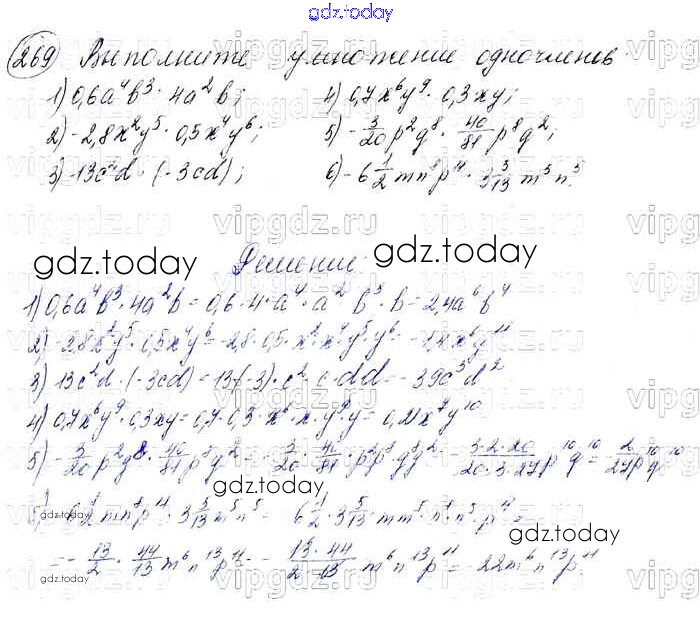 gdz.today
269 Выполните умножение одночленов.
1) 0,6a⁴b³ · 4a²b; 4) 0,7x⁶y⁹ · 0,3xy;
2) -2,8x²y⁵ · 0,5x⁴y⁶; 5) -3/20 p²q⁸ · 40/81 p⁸q²;
3) -13c²d · (-3cd); 6) -6 1/2 mn⁸p¹¹ · 3 5/13 m⁵n⁵.
gdz.today Решение. gdz.today
1) 0,6a⁴b³ · 4a²b = 0,6 · 4 · a⁴ · a² · b³ · b = 2,4a⁶b⁴
2) -2,8x²y⁵ · 0,5x⁴y⁶ = -2,8 · 0,5 · x² · x⁴y⁵y⁶ = -1,4x⁶y¹¹
3) 13c²d · (-3cd) = 13(-3) · c² · c · dd = -39c³d²
4) 0,7x⁶y⁹ · 0,3xy = 0,7 · 0,3 · x⁶ · x · y⁹ · y = 0,21x⁷y¹⁰
5) -3/20 p²q⁸ · 40/81 p⁸q² = -3/20 · 40/81 · p²p⁸q⁸q² = -3·2·20/20·3·27 p¹⁰q¹⁰ = 2/27 p¹⁰q¹⁰
gdz.today
6 1/2 mn⁸p¹¹ · 3 5/13 m⁵n⁵ = 6 1/2 · 3 5/13 · mm⁵ · n⁸ · n⁵ · p¹¹ =
gdz.today
= -13/2 · 44/13 m⁶n¹³p¹¹ = -13·44/2·13 m⁶n¹³p¹¹ = 22m⁶n¹³p¹¹
gdz.today
vipgdz.ru